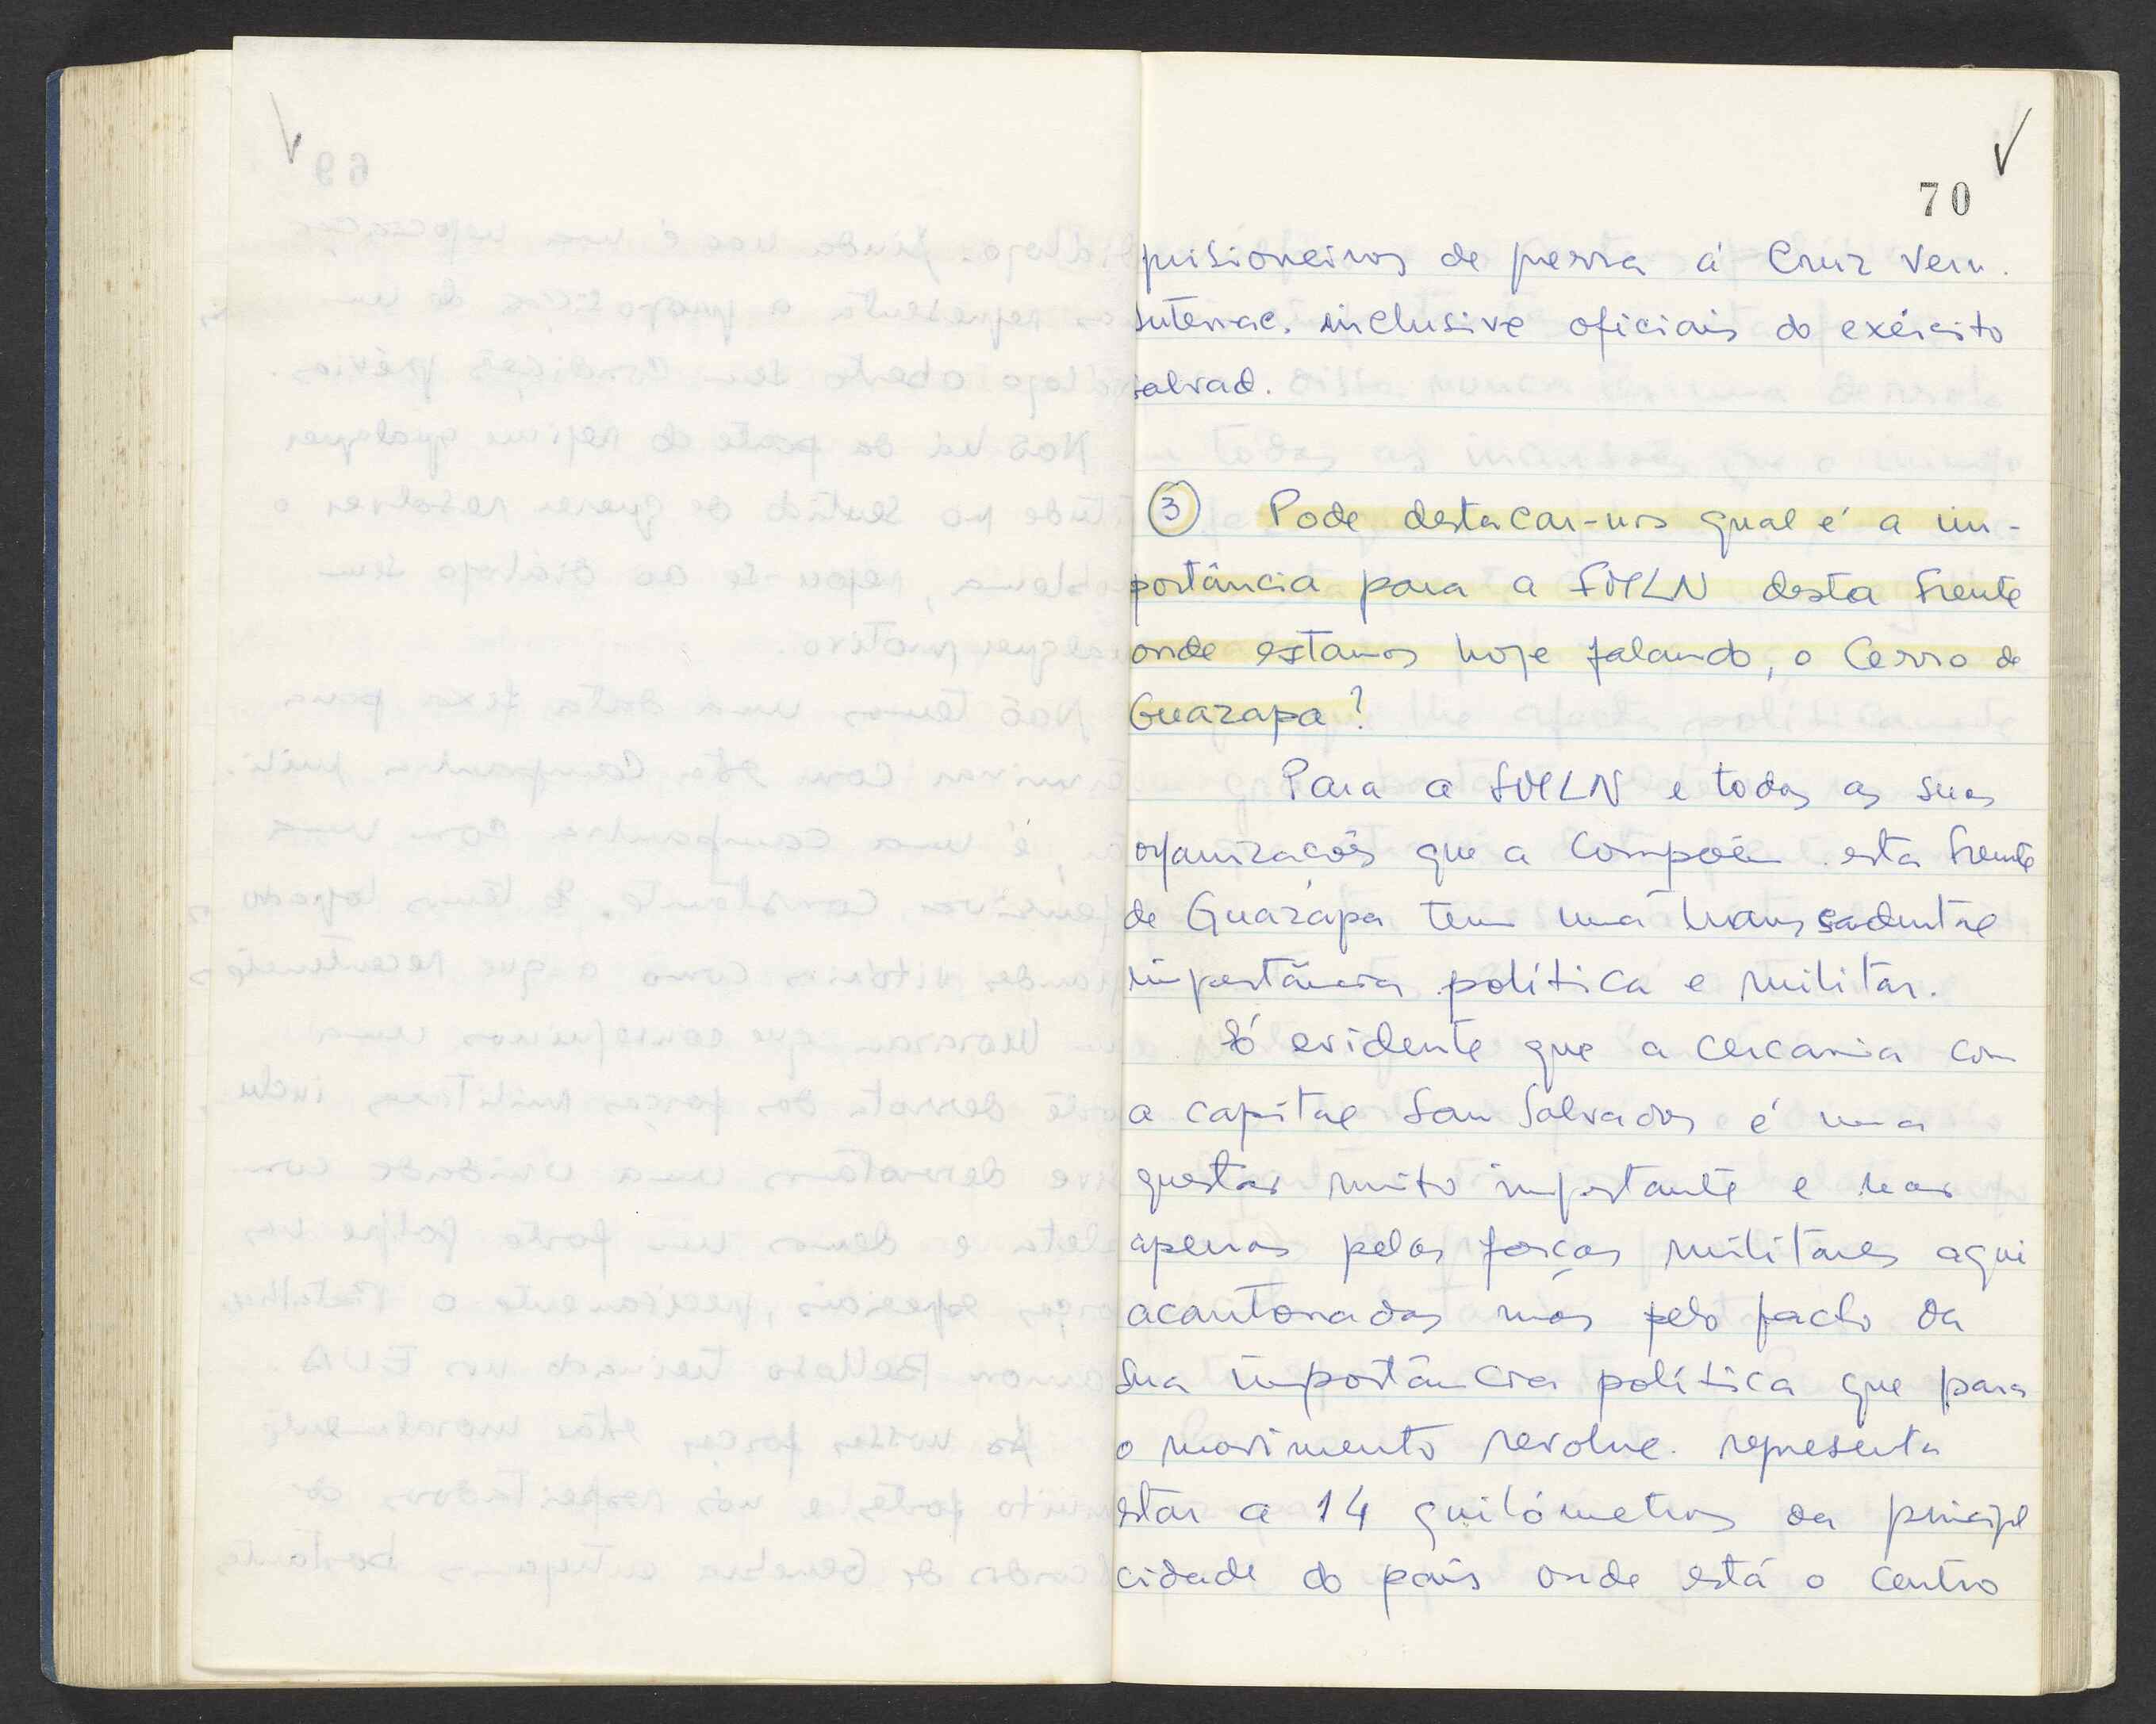 70
prisioneiros de guerra á Cruz Verm.
Internac. inclusive oficiais do exército
salvad.
③ Pode destacar-nos qual é a im-
portância para a FMLN desta Frente
onde estamos hoje falando, o Cerro de
Guazapa?
Para a FMLN e todas as suas
organizacões que a compoêm esta Frente
de Guazapa tem uma transcadental
importância política e militar.
Só evidente que a cercania com
a capital San Salvador é uma
questão muito importante e nao
apenas pelas forças militares aqui
acantonadas mas pelo facto da
sua importância política que para
o movimento revoluc. representa
estar a 14 quilómetros da principal
cidade do país onde está o centro